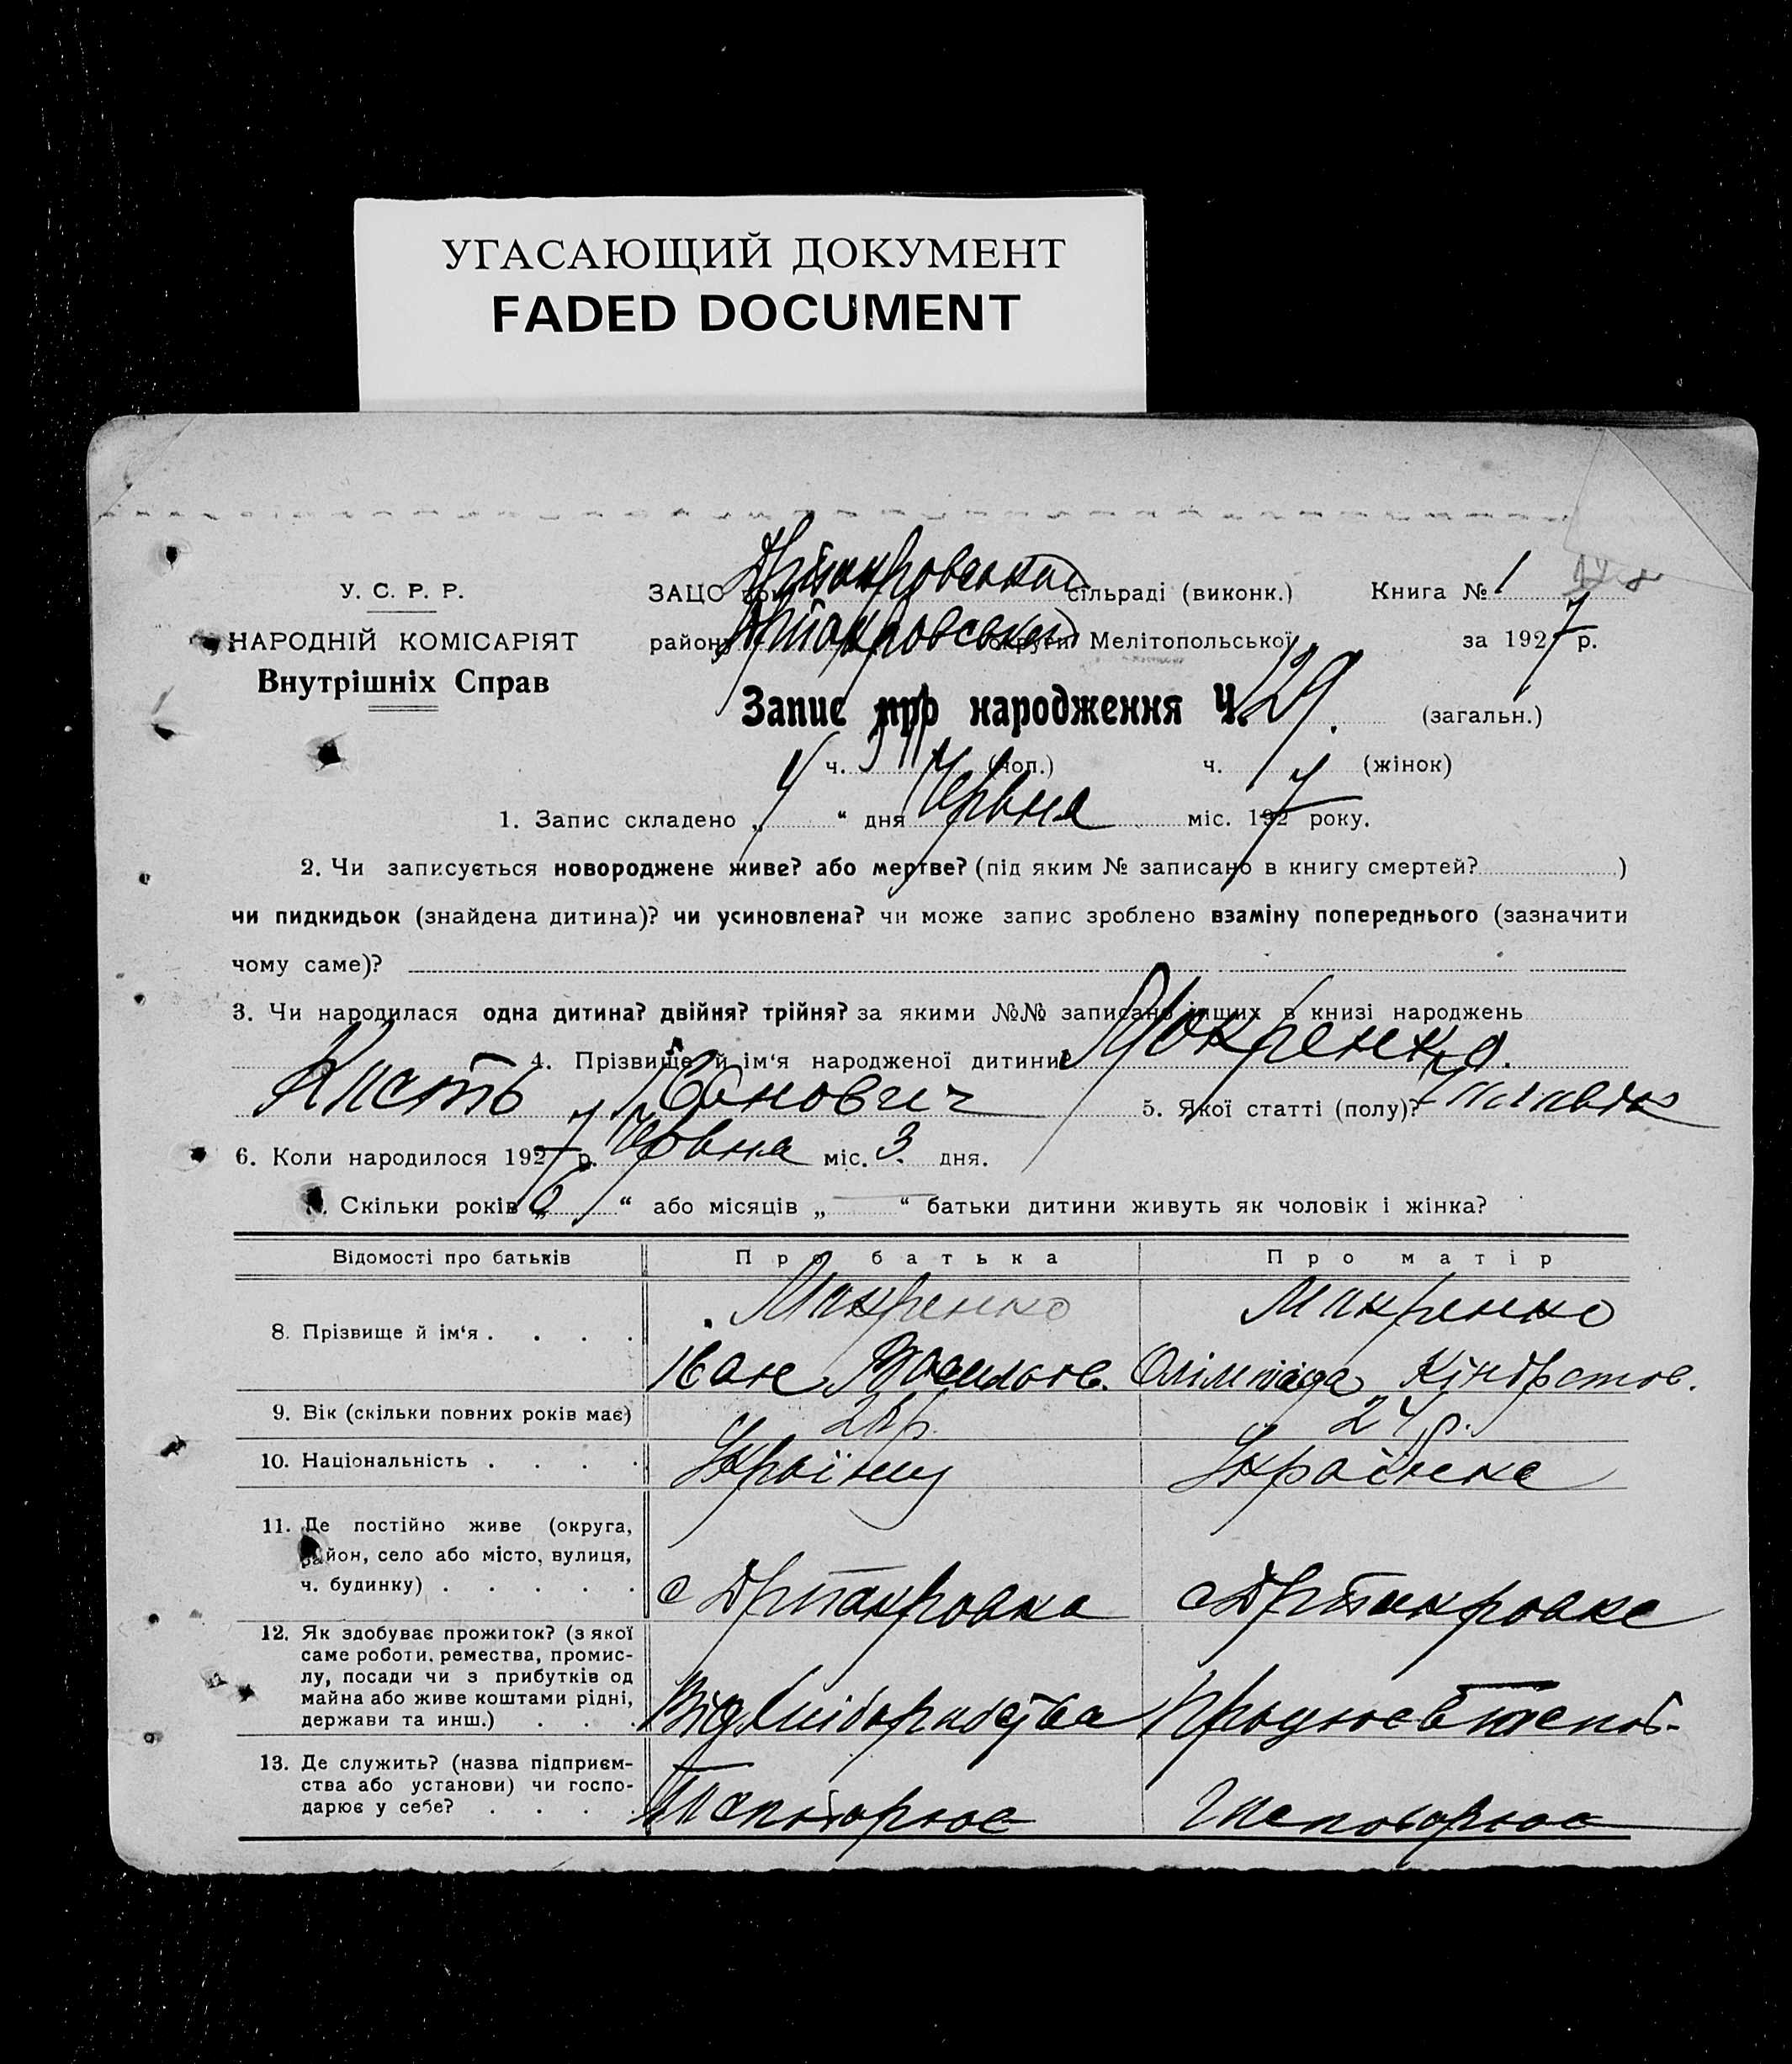 УГАСАЮЩИЙ ДОКУМЕНТ
FADED DOCUMENT
У. С. Р. Р.
НАРОДНІЙ КОМІСАРІЯТ
Внутрішніх Справ
ЗАЦС при сільраді (виконк.) Книга № 1
району округи Мелітопольської за 1927 р.
Запис про народження Ч. 29. (загальн.)
ч. (чол.) ч. (жінок)
1. Запис складено „ 4 “ дня Червня міс. 1927 року.
2. Чи записується новороджене живе? або мертве? (під яким № записано в книгу смертей? )
чи пидкидьок (знайдена дитина)? чи усиновлена? чи може запис зроблено взаміну попереднього (зазначити
чому саме)?
3. Чи народилася одна дитина? двійня? трійня? за якими №№ записано інших в книзі народжень
4. Прізвище й ім‘я народженої дитини? Мокренко.
Іванович 5. Якої статті (полу)?
6. Коли народилося 1927 р. Червня міс. 3 дня.
7. Скільки років „ 6 “ або місяців „ — “ батьки дитини живуть як чоловік і жінка?
Відомості про батьків Про батька Про матір
8. Прізвище й ім‘я . . . . Мокренко Мокренко
Іван Василов. Олімпіада Кіндратов.
9. Вік (скільки повних років має) 24 р.
10. Національність . . . . Українец Українка
11. Де постійно живе (округа,
район, село або місто, вулиця,
ч. будинку) . . . . . с
12. Як здобуває прожиток? (з якої
саме роботи, ремества, промис-
лу, посади чи з прибутків од
майна або живе коштами рідні,
держави та инш.) . . . Від Хліборобства
13. Де служить? (назва підприєм-
ства або установи) чи госпо-
дарює у себе? . . . .